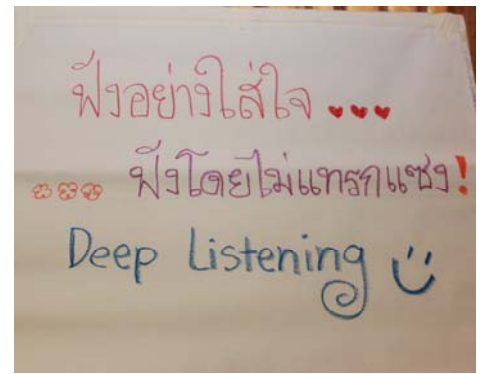 ฟังอย่างใส่ใจ
ฟังโดยไม่แทรกแซง!
Deep Listening